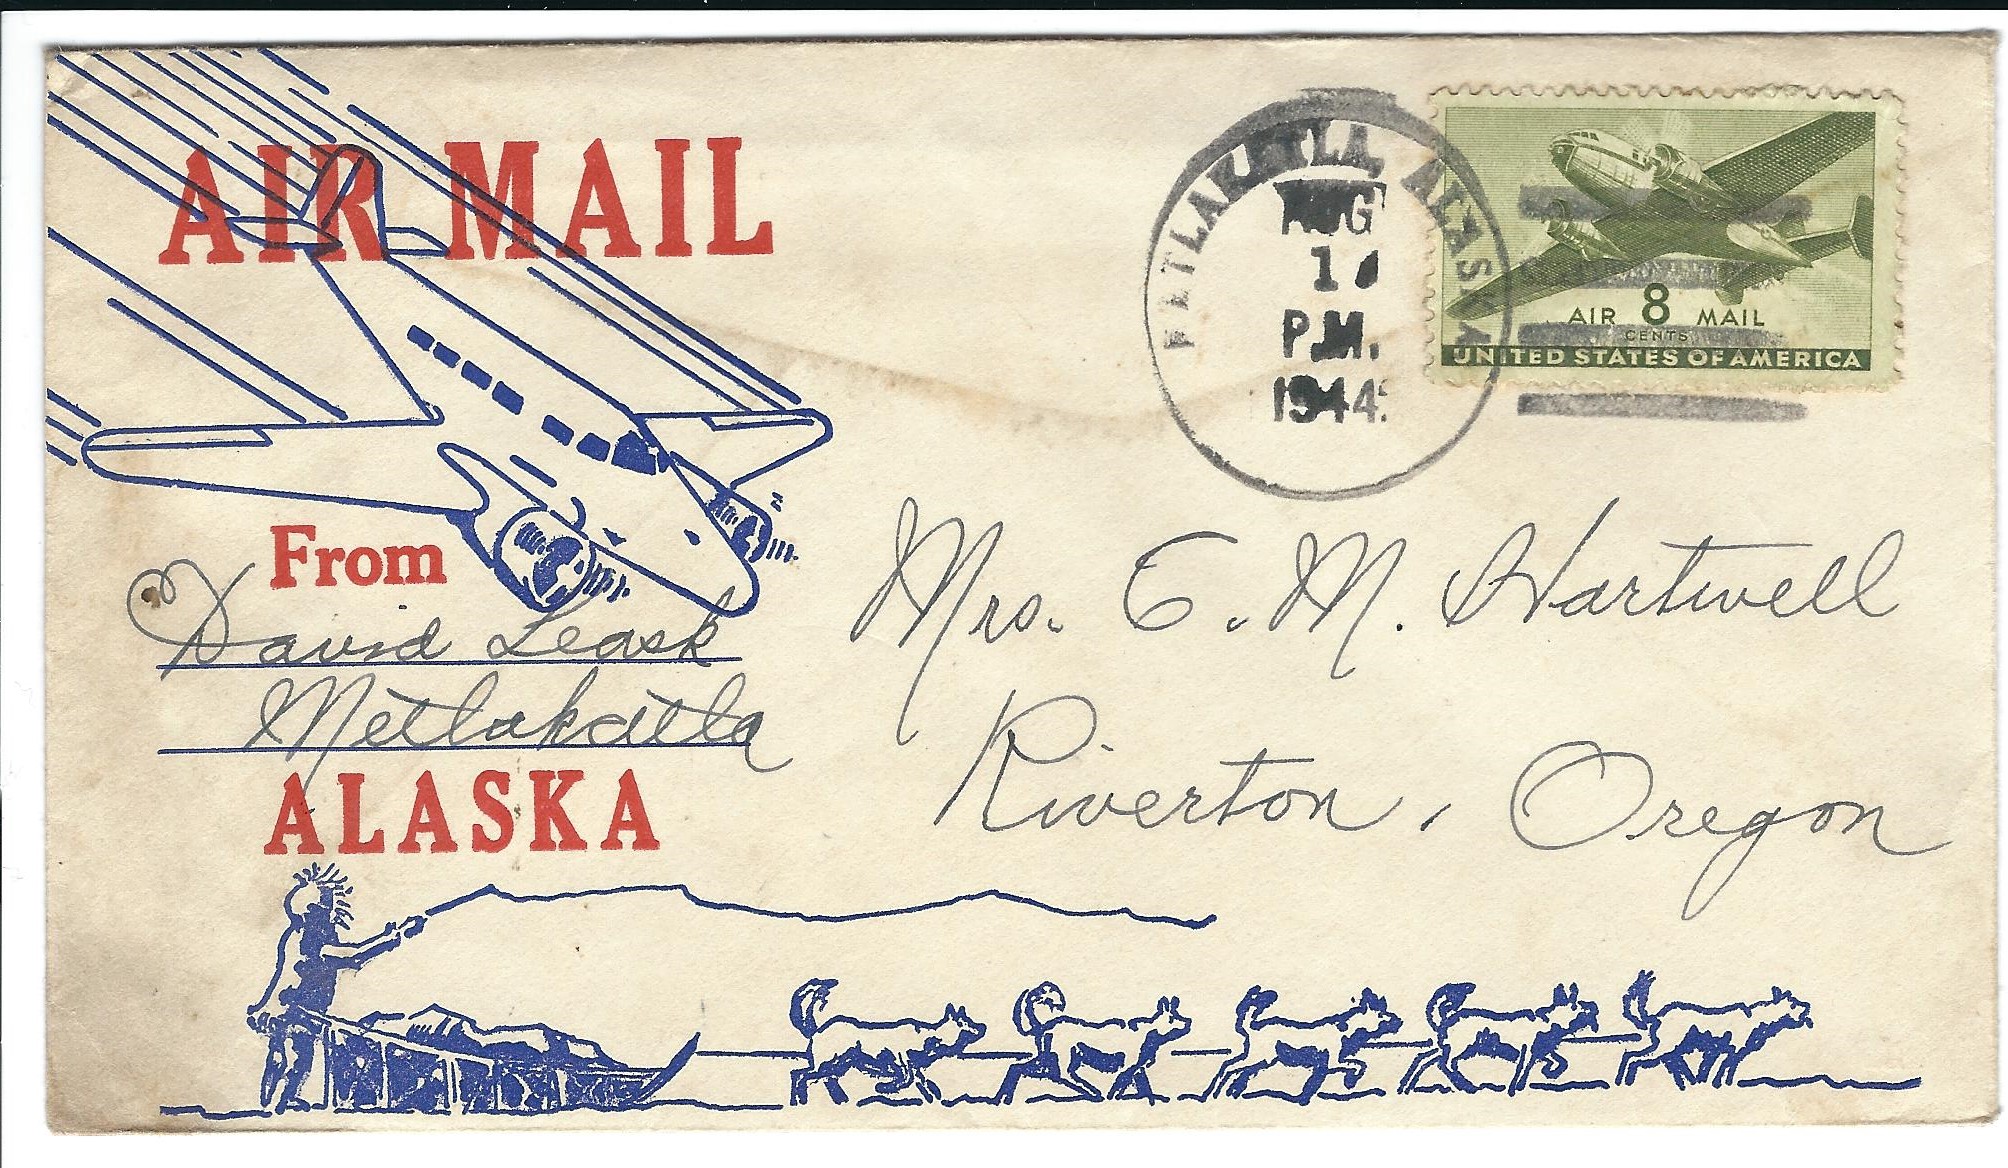 AIR MAIL
From
David Leask
Metlakatla
ALASKA
METLAKATLA, ALASKA
AUG
P.M.
1944
AIR 8 MAIL
CENTS
UNITED STATES OF AMERICA
Mrs. E. M. Hartwell
Riverton, Oregon